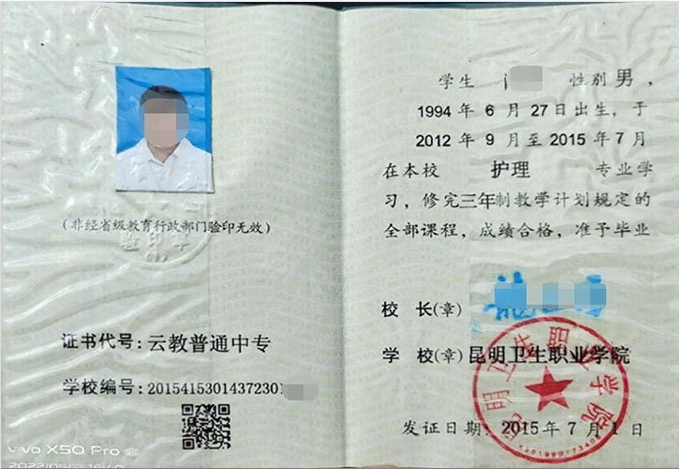 (非经省级教育行政部门验印无效)
证书代号：云教普通中专
学校编号：20154153014372301
vivo X50 Pro
学生 性别 男，
1994 年 6 月 27 日出生，于
2012 年 9 月至 2015 年 7 月
在本校 护理 专业学
习，修完三年制教学计划规定的
全部课程，成绩合格，准予毕业
校 长(章)
学 校(章) 昆明卫生职业学院
昆明卫生职业学院
发证日期：2015 年 7 月 1 日